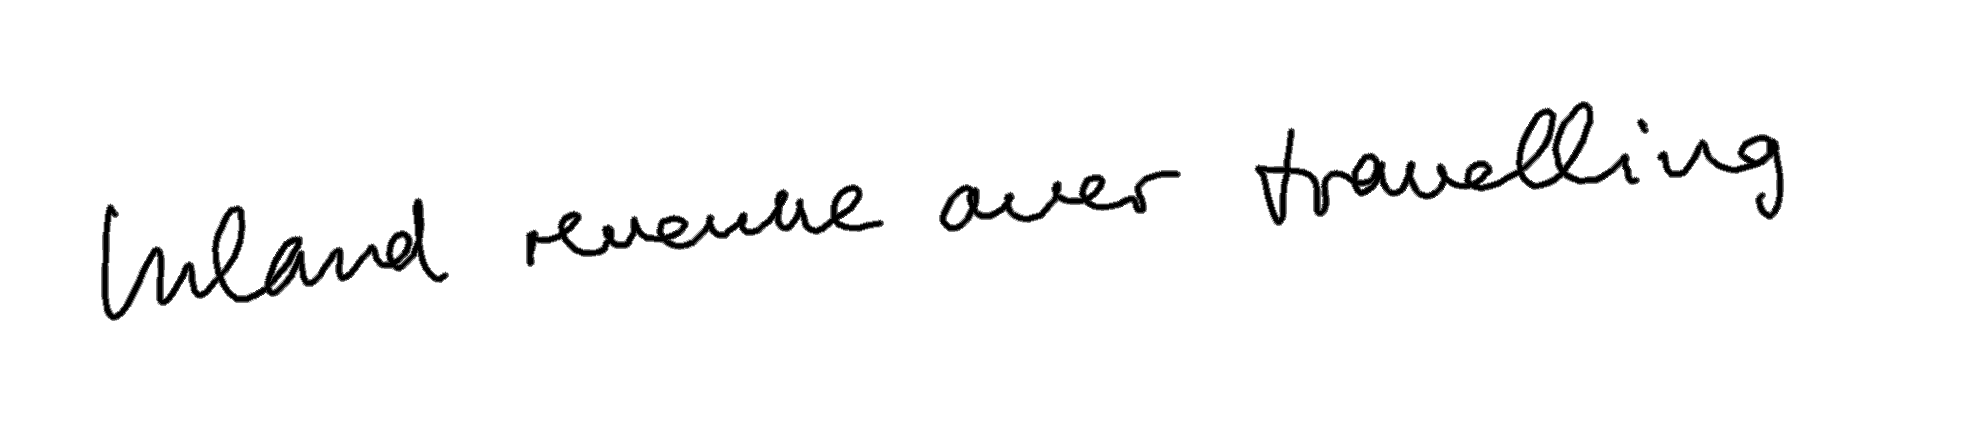 Inland revenue over travelling